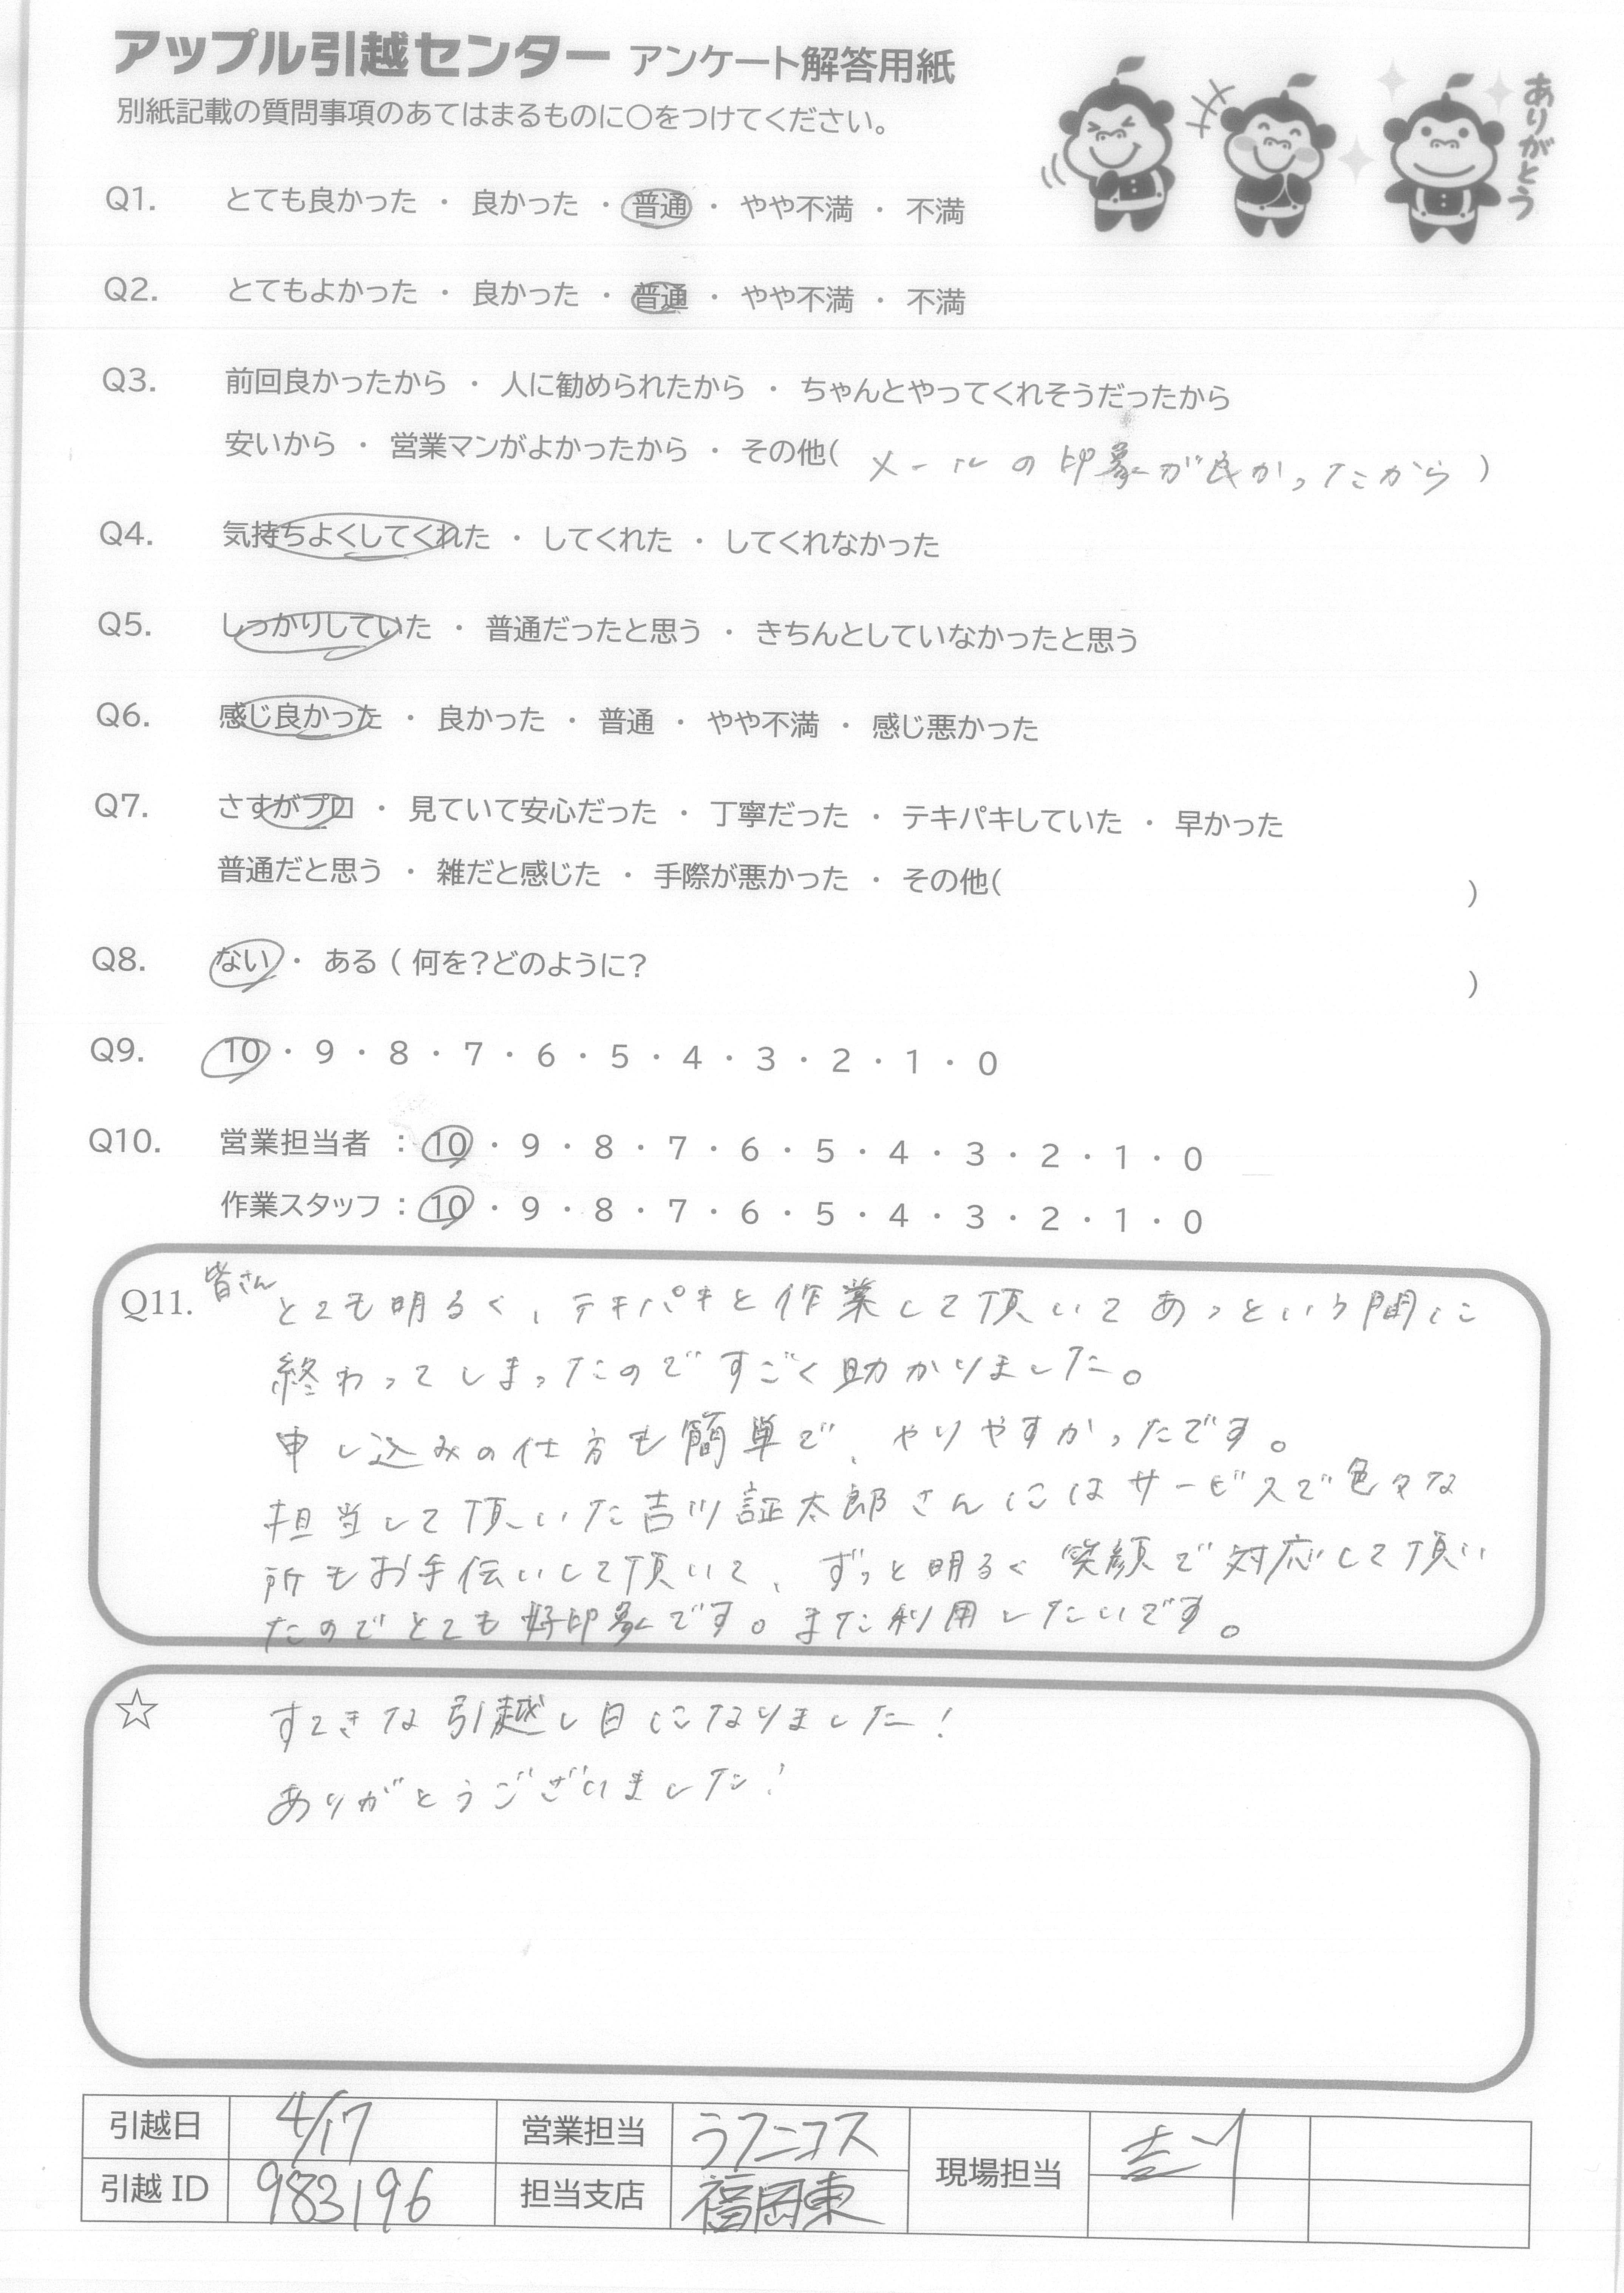 アップル引越センター アンケート解答用紙
別紙記載の質問事項のあてはまるものに○をつけてください。
ありがとう
Q1. とても良かった ・ 良かった ・ 普通 ・ やや不満 ・ 不満
Q2. とてもよかった ・ 良かった ・ 普通 ・ やや不満 ・ 不満
Q3. 前回良かったから ・ 人に勧められたから ・ ちゃんとやってくれそうだったから
安いから ・ 営業マンがよかったから ・ その他( メールの印象が良かったから )
Q4. 気持ちよくしてくれた ・ してくれた ・ してくれなかった
Q5. しっかりしていた ・ 普通だったと思う ・ きちんとしていなかったと思う
Q6. 感じ良かった ・ 良かった ・ 普通 ・ やや不満 ・ 感じ悪かった
Q7. さすがプロ ・ 見ていて安心だった ・ 丁寧だった ・ テキパキしていた ・ 早かった
普通だと思う ・ 雑だと感じた ・ 手際が悪かった ・ その他( )
Q8. ない ・ ある ( 何を?どのように? )
Q9. 10 ・ 9 ・ 8 ・ 7 ・ 6 ・ 5 ・ 4 ・ 3 ・ 2 ・ 1 ・ 0
Q10. 営業担当者 : 10 ・ 9 ・ 8 ・ 7 ・ 6 ・ 5 ・ 4 ・ 3 ・ 2 ・ 1 ・ 0
作業スタッフ : 10 ・ 9 ・ 8 ・ 7 ・ 6 ・ 5 ・ 4 ・ 3 ・ 2 ・ 1 ・ 0
Q11. 皆さんとても明るく、テキパキと作業して頂いてあっという間に
終わってしまったのですごく助かりました。
申し込みの仕方も簡単で、やりやすかったです。
担当して頂いた吉川証太郎さんにはサービスで色々な
所もお手伝いして頂いて、ずっと明るく笑顔で対応して頂い
たのでとても好印象です。また利用したいです。
☆ すてきな引越し日になりました!
ありがとうございました!
引越日 4/17 営業担当 ラフニコス 現場担当 吉川
引越 ID 983196 担当支店 福岡東